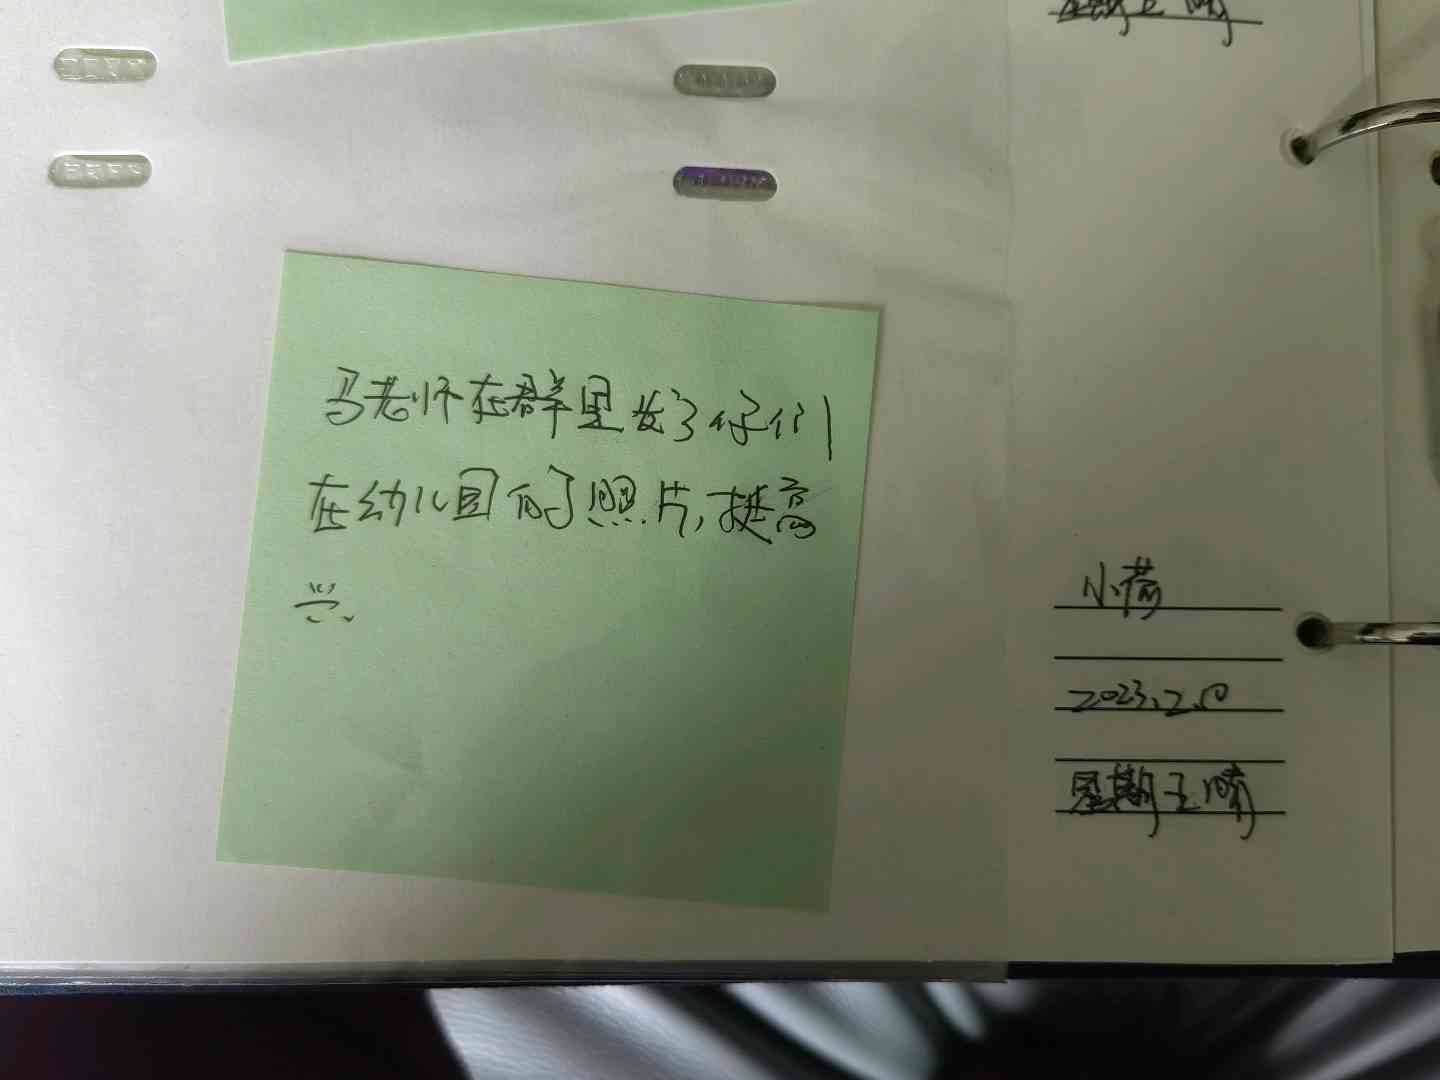 星期五 晴
马老师在群里发了你们
在幼儿园的照片,挺高
兴.
小荷
2023.2.10
星期五 晴